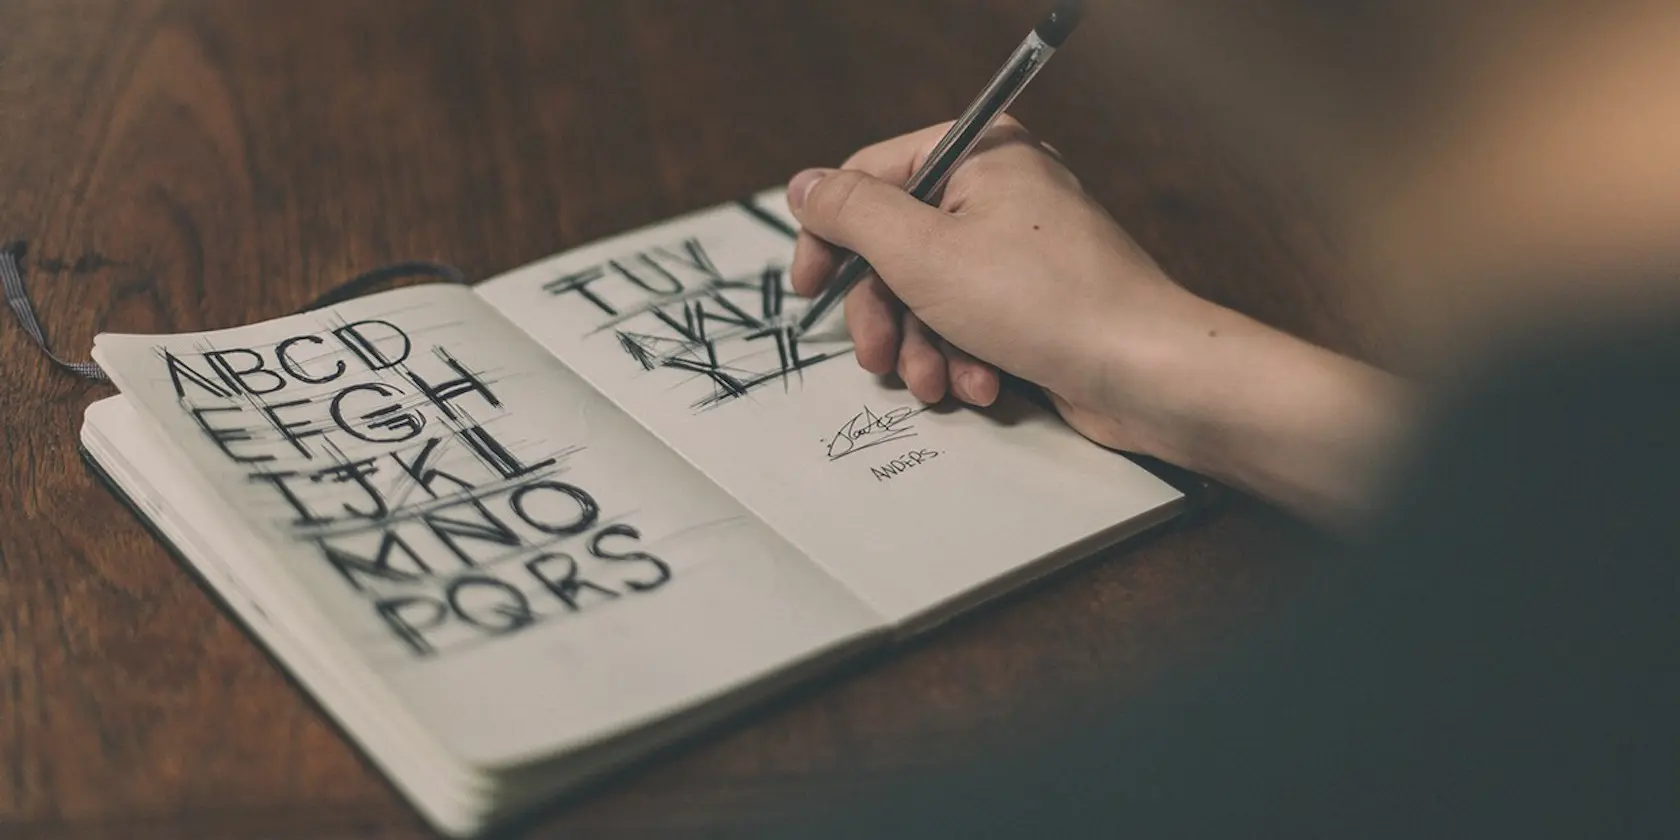 ABCD
EFGH
IJKL
MNO
PQRS
TUV
WX
YZ
ANDERS.